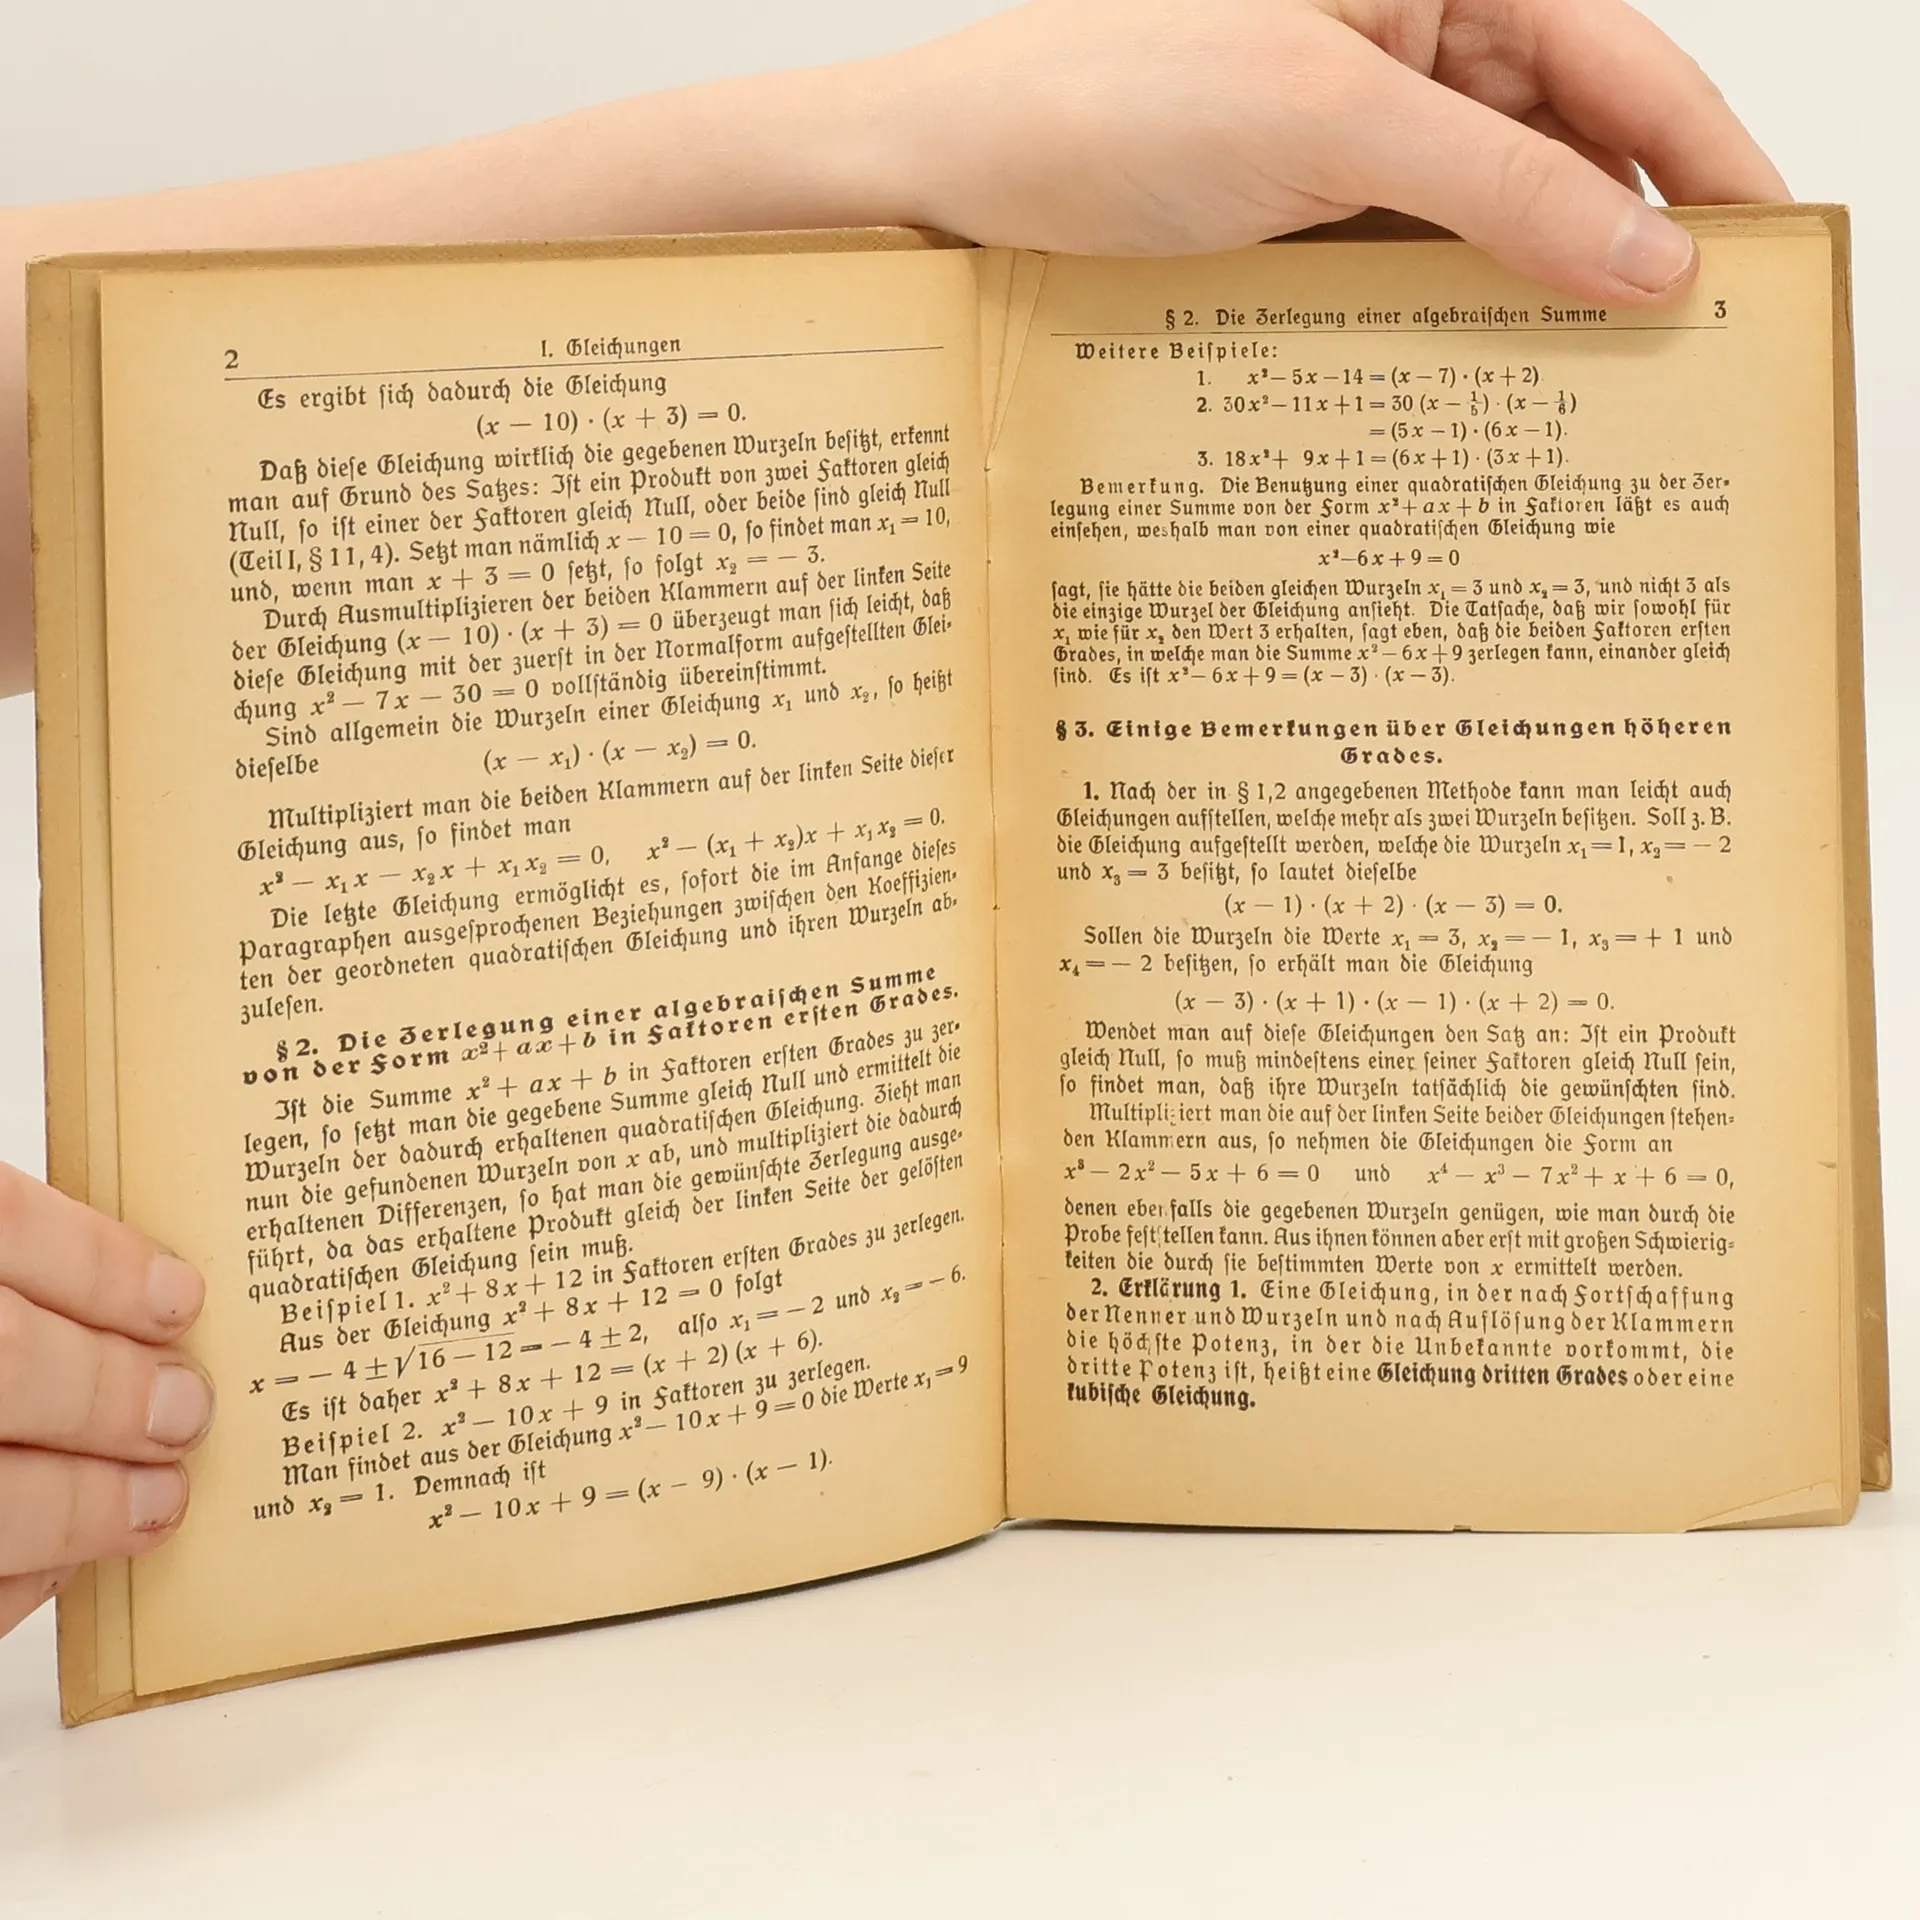 2
I. Gleichungen
Es ergibt ſich dadurch die Gleichung
(x — 10) · (x + 3) = 0.
Daß dieſe Gleichung wirklich die gegebenen Wurzeln beſitzt, erkennt
man auf Grund des Satzes: Iſt ein Produkt von zwei Faktoren gleich
Null, ſo iſt einer der Faktoren gleich Null, oder beide ſind gleich Null
(Teil I, § 11, 4). Setzt man nämlich x — 10 = 0, ſo findet man x₁ = 10,
und, wenn man x + 3 = 0 ſetzt, ſo folgt x₂ = — 3.
Durch Ausmultiplizieren der beiden Klammern auf der linken Seite
der Gleichung (x — 10) · (x + 3) = 0 überzeugt man ſich leicht, daß
dieſe Gleichung mit der zuerſt in der Normalform aufgeſtellten Glei-
chung x² — 7x — 30 = 0 vollſtändig übereinſtimmt.
Sind allgemein die Wurzeln einer Gleichung x₁ und x₂, ſo heißt
dieſelbe (x — x₁) · (x — x₂) = 0.
Multipliziert man die beiden Klammern auf der linken Seite dieſer
Gleichung aus, ſo findet man
x² — x₁x — x₂x + x₁x₂ = 0, x² — (x₁ + x₂)x + x₁x₂ = 0.
Die letzte Gleichung ermöglicht es, ſofort die im Anfange dieſes
Paragraphen ausgeſprochenen Beziehungen zwiſchen den Koeffizien-
ten der geordneten quadratiſchen Gleichung und ihren Wurzeln ab-
zuleſen.
§ 2. Die Zerlegung einer algebraiſchen Summe
von der Form x² + ax + b in Faktoren erſten Grades.
Iſt die Summe x² + ax + b in Faktoren erſten Grades zu zer-
legen, ſo ſetzt man die gegebene Summe gleich Null und ermittelt die
Wurzeln der dadurch erhaltenen quadratiſchen Gleichung. Zieht man
nun die gefundenen Wurzeln von x ab, und multipliziert die dadurch
erhaltenen Differenzen, ſo hat man die gewünſchte Zerlegung ausge-
führt, da das erhaltene Produkt gleich der linken Seite der gelöſten
quadratiſchen Gleichung ſein muß.
Beiſpiel 1. x² + 8x + 12 in Faktoren erſten Grades zu zerlegen.
Aus der Gleichung x² + 8x + 12 = 0 folgt
x = — 4 ± √16 — 12 = — 4 ± 2, alſo x₁ = — 2 und x₂ = — 6.
Es iſt daher x² + 8x + 12 = (x + 2) (x + 6).
Beiſpiel 2. x² — 10x + 9 in Faktoren zu zerlegen.
Man findet aus der Gleichung x² — 10x + 9 = 0 die Werte x₁ = 9
und x₂ = 1. Demnach iſt
x² — 10x + 9 = (x — 9) · (x — 1).
§ 2. Die Zerlegung einer algebraiſchen Summe
3
Weitere Beiſpiele:
1. x² — 5x — 14 = (x — 7) · (x + 2)
2. 30x² — 11x + 1 = 30 (x — 1/5) · (x — 1/6)
= (5x — 1) · (6x — 1).
3. 18x² + 9x + 1 = (6x + 1) · (3x + 1).
Bemerkung. Die Benutzung einer quadratiſchen Gleichung zu der Zer-
legung einer Summe von der Form x² + ax + b in Faktoren läßt es auch
einſehen, weshalb man von einer quadratiſchen Gleichung wie
x² — 6x + 9 = 0
ſagt, ſie hätte die beiden gleichen Wurzeln x₁ = 3 und x₂ = 3, und nicht 3 als
die einzige Wurzel der Gleichung anſieht. Die Tatſache, daß wir ſowohl für
x₁ wie für x₂ den Wert 3 erhalten, ſagt eben, daß die beiden Faktoren erſten
Grades, in welche man die Summe x² — 6x + 9 zerlegen kann, einander gleich
ſind. Es iſt x² — 6x + 9 = (x — 3) · (x — 3).
§ 3. Einige Bemerkungen über Gleichungen höheren
Grades.
1. Nach der in § 1,2 angegebenen Methode kann man leicht auch
Gleichungen aufſtellen, welche mehr als zwei Wurzeln beſitzen. Soll z. B.
die Gleichung aufgeſtellt werden, welche die Wurzeln x₁ = 1, x₂ = — 2
und x₃ = 3 beſitzt, ſo lautet dieſelbe
(x — 1) · (x + 2) · (x — 3) = 0.
Sollen die Wurzeln die Werte x₁ = 3, x₂ = — 1, x₃ = + 1 und
x₄ = — 2 beſitzen, ſo erhält man die Gleichung
(x — 3) · (x + 1) · (x — 1) · (x + 2) = 0.
Wendet man auf dieſe Gleichungen den Satz an: Iſt ein Produkt
gleich Null, ſo muß mindeſtens einer ſeiner Faktoren gleich Null ſein,
ſo findet man, daß ihre Wurzeln tatſächlich die gewünſchten ſind.
Multipliziert man die auf der linken Seite beider Gleichungen ſtehen-
den Klammern aus, ſo nehmen die Gleichungen die Form an
x³ — 2x² — 5x + 6 = 0 und x⁴ — x³ — 7x² + x + 6 = 0,
denen ebenfalls die gegebenen Wurzeln genügen, wie man durch die
Probe feſtſtellen kann. Aus ihnen können aber erſt mit großen Schwierig-
keiten die durch ſie beſtimmten Werte von x ermittelt werden.
2. Erklärung 1. Eine Gleichung, in der nach Fortſchaffung
der Nenner und Wurzeln und nach Auflöſung der Klammern
die höchſte Potenz, in der die Unbekannte vorkommt, die
dritte Potenz iſt, heißt eine Gleichung dritten Grades oder eine
kubiſche Gleichung.